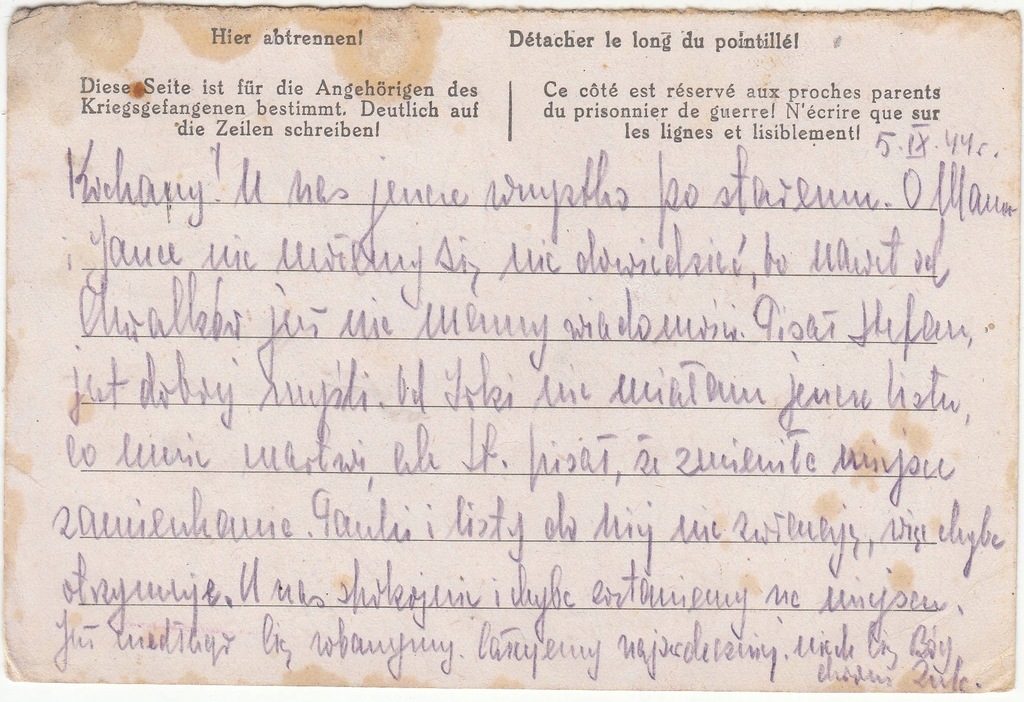 Hier abtrennen!
Détacher le long du pointillé!
Diese Seite ist für die Angehörigen des
Kriegsgefangenen bestimmt. Deutlich auf
die Zeilen schreiben!
Ce côté est réservé aux proches parents
du prisonnier de guerre! N'écrire que sur
les lignes et lisiblement!
5.IX.44r.
Kochany! U nas jeszcze wszystko po staremu. O
i Jance nic możemy się nic dowiedzieć, bo nawet od
już nie mamy wiadomości. Pisał Stefan,
jest dobrej myśli. Od Irki nie miałam jeszcze listu,
co mnie martwi, ale St. pisał, że zmieniła miejsce
zamieszkania. Paczki i listy do niej nie zwracają, więc chyba
otrzymuje. U nas spokojnie i chyba zostaniemy na miejscu.
Już niedługo Cię zobaczymy. Całujemy najserdeczniej. Niech Cię Bóg
chroni